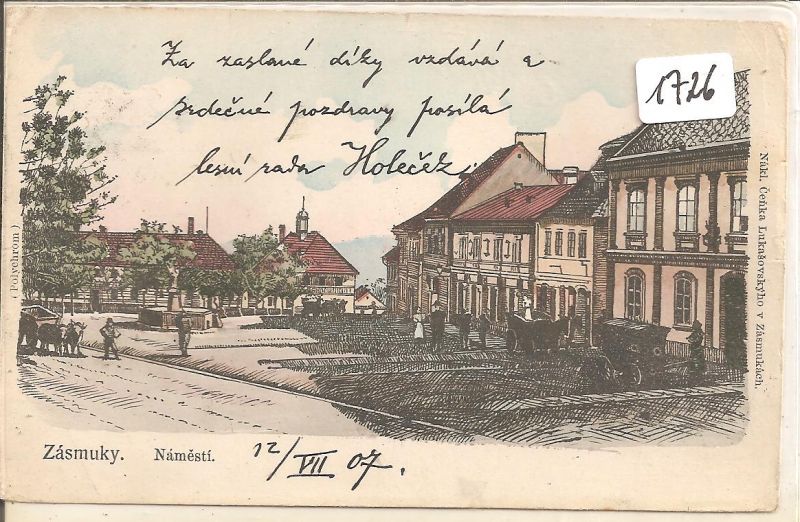 Za zaslané dížy vzdává a
srdečné pozdravy posílá
lesní rada Holečěz
1726
(Polychrom)
Nákl. Čeňka Lukašovskýho v Zásmukách.
Zásmuky. Náměstí. 12/VII 07.